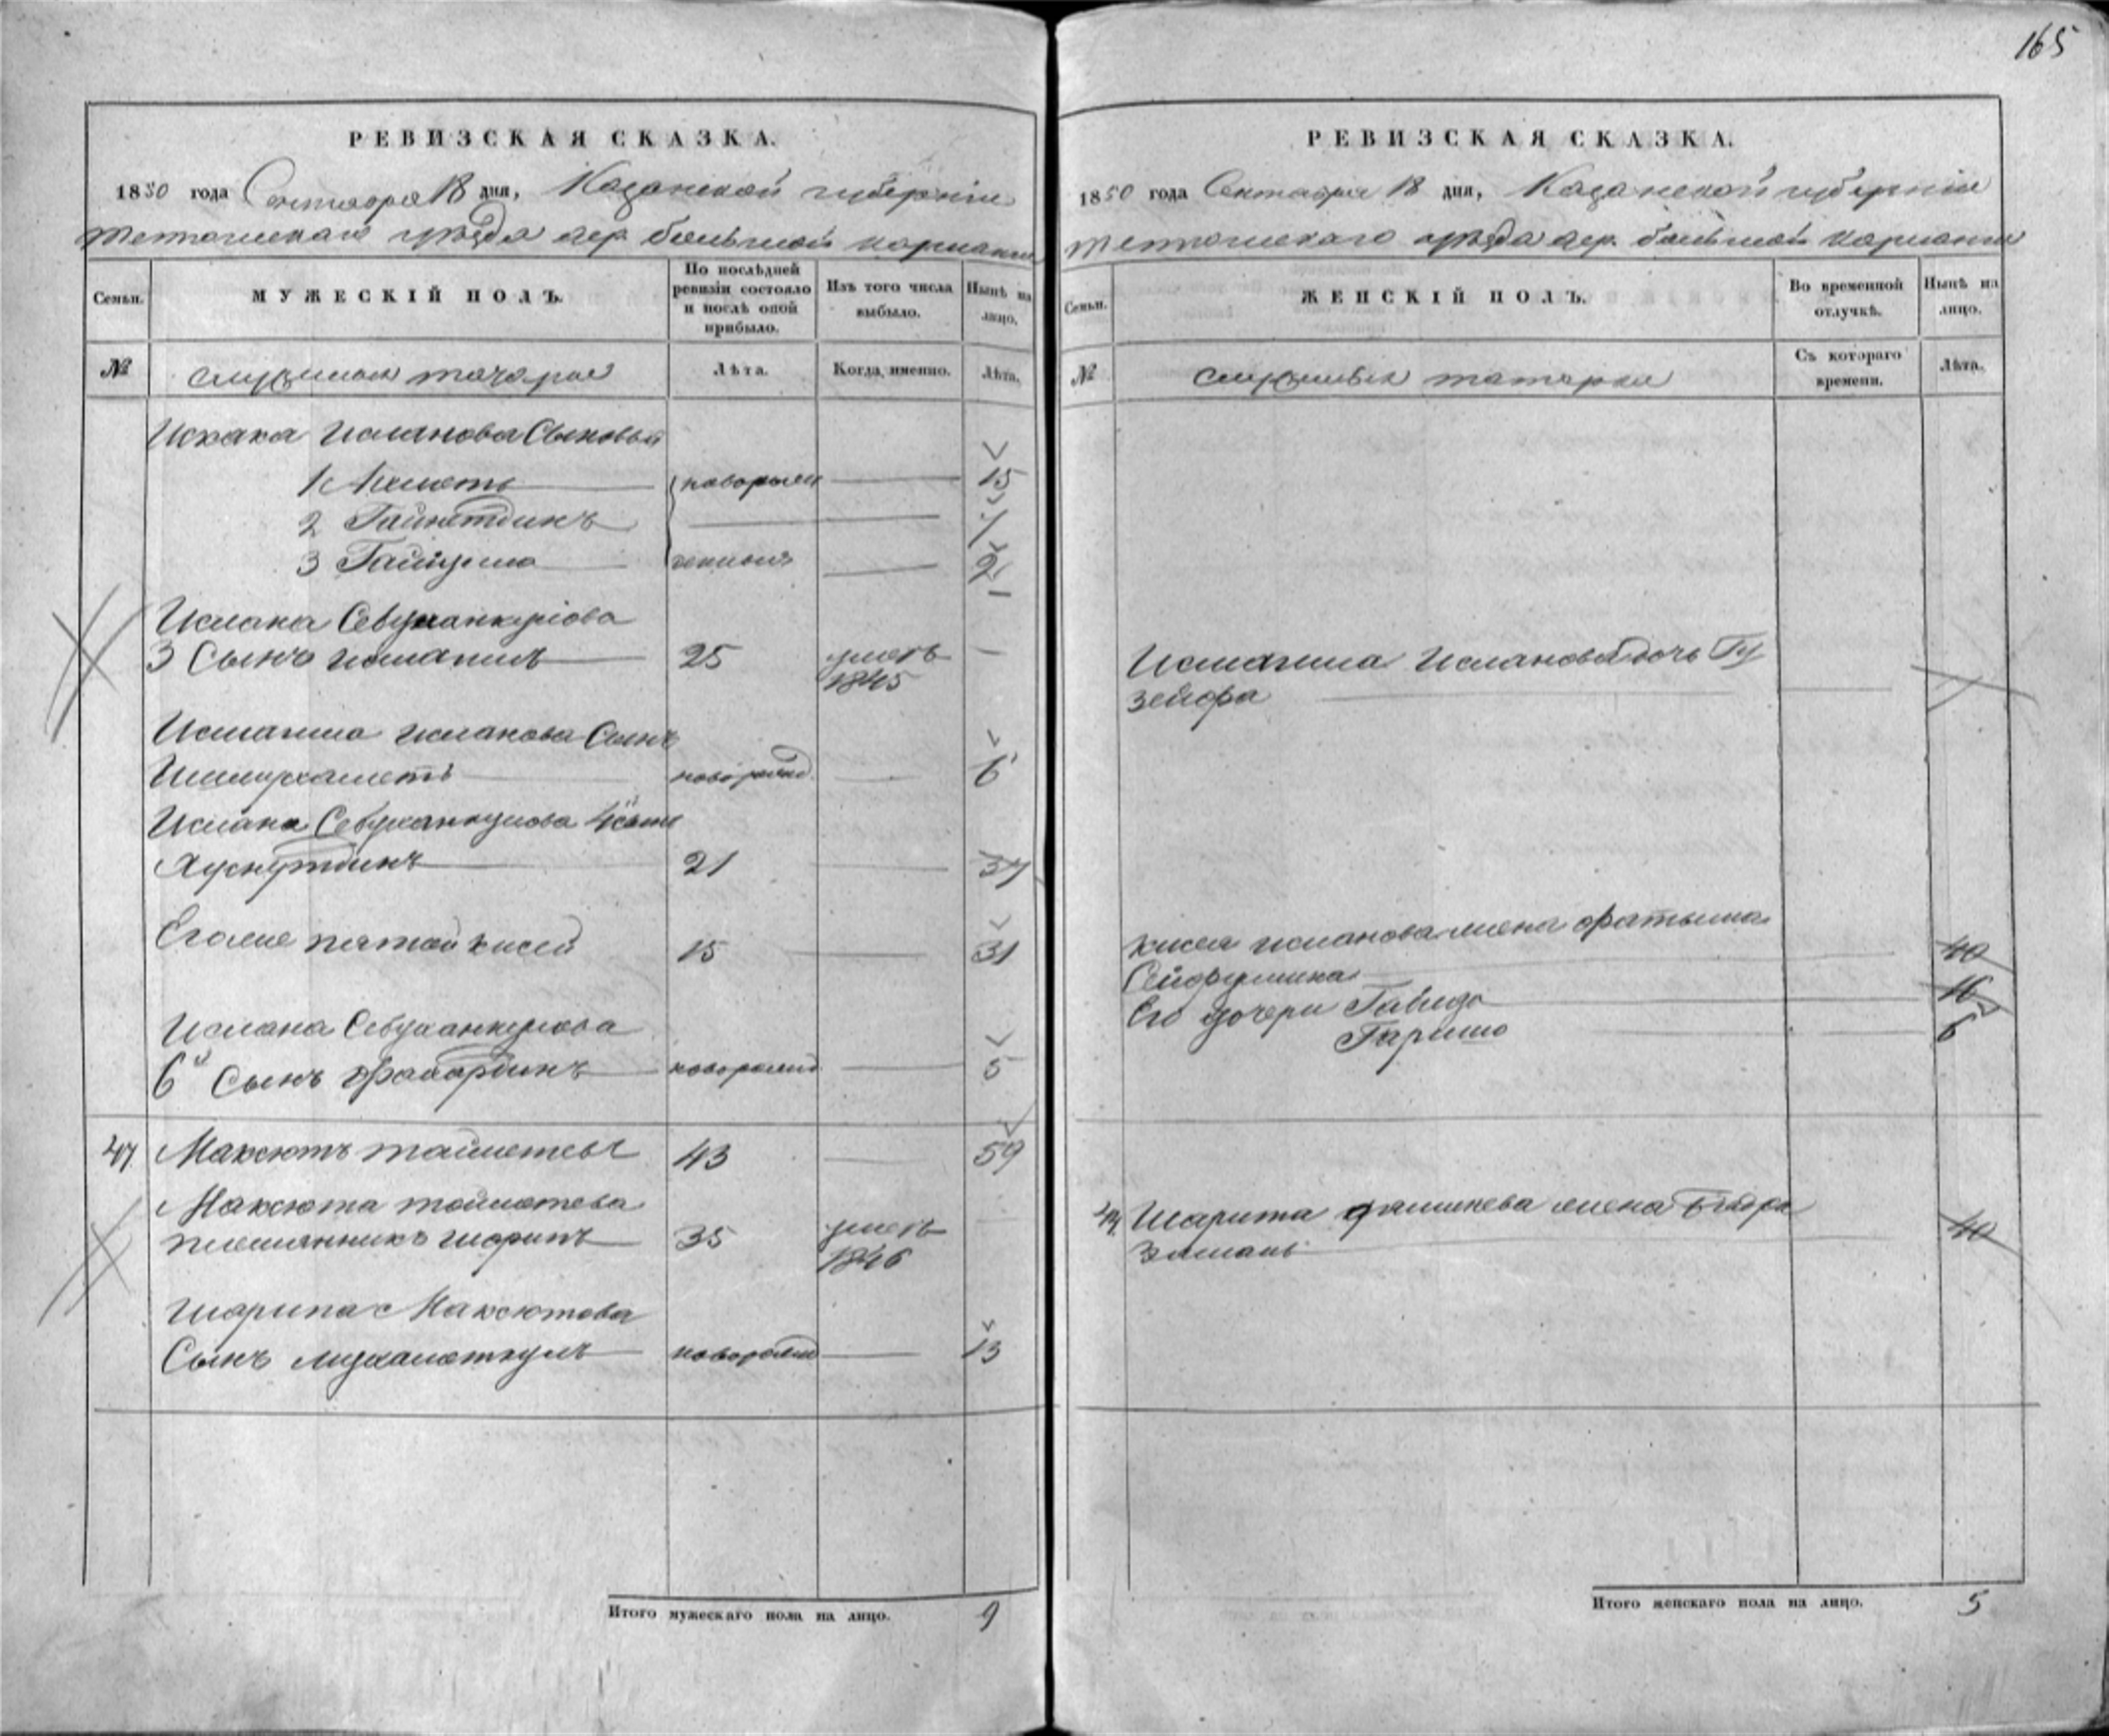 165
РЕВИЗСКАЯ СКАЗКА.
1850 года Сентября 18 дня, Казанской губернии
Тетюшскаго уѣзда дер. большой
Семьи.
МУЖЕСКІЙ ПОЛЪ.
По послѣдней ревизіи состояло и послѣ оной прибыло.
Изъ того числа выбыло.
Нынѣ на лицо.
№
служилыя татары
Лѣта.
Когда именно.
Лѣта.
Искака Исланова Сыновья
1 Ахметь новорож 15
2 Гайнетдинъ 7
3 2
1
Ислана
3 Сынъ исмагилъ 25 умеръ
1845
Исмагила исланова Сынъ
новорожд 6
Ислана 4й сынъ
Хуснутдинъ 21 37
Его же пятой кисей 15 31
Ислана
6й Сынъ новорожд 5
47 Максютъ тойметевъ 43 59
Максюта тойметева
племянникъ шарипъ 35 умеръ
1846
шарипа Максютова
Сынъ мухаметкулъ новорожд 13
Итого мужескаго пола на лицо. 9
РЕВИЗСКАЯ СКАЗКА.
1850 года Сентября 18 дня, Казанской губерніи
Тетюшскаго уѣзда дер. большой
Семьи.
ЖЕНСКІЙ ПОЛЪ.
Во временной отлучкѣ.
Нынѣ на лицо.
№
служилыя татарки
Съ котораго времени.
Лѣта.
Исмагила Исланова дочь Гу
зейфа
кисея исланова жена фатыма
40
Его дочери 16
6
47 Шарипа жена
40
Итого женскаго пола на лицо. 5